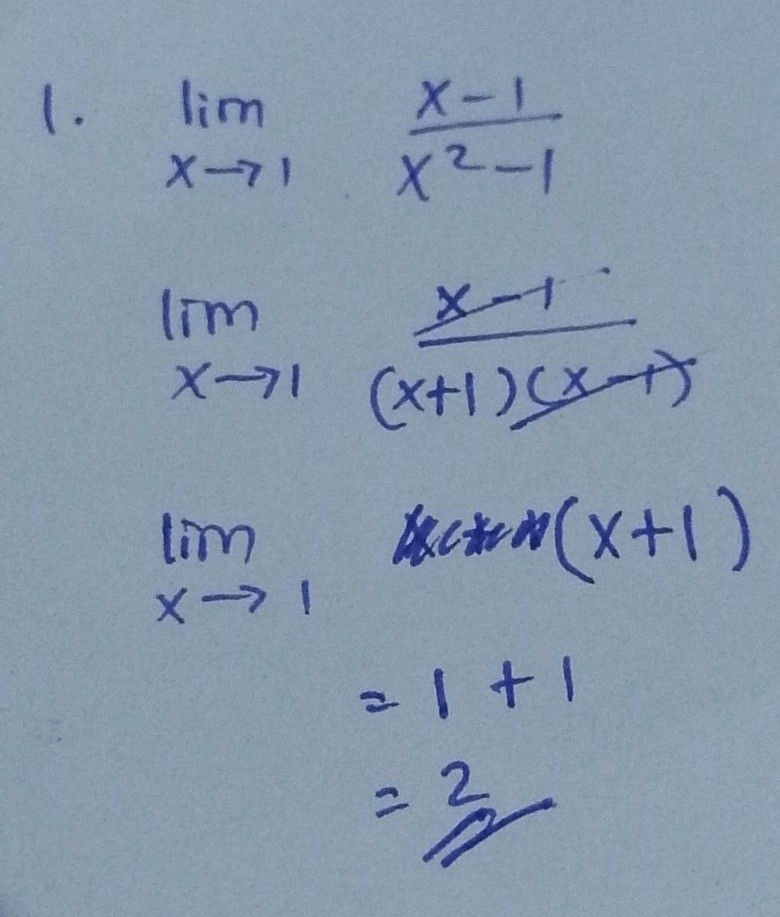 1. lim x→1 (x-1)/(x²-1)
lim x→1 (x-1)/((x+1)(x-1))
lim x→1 (x+1)
= 1 + 1
= 2